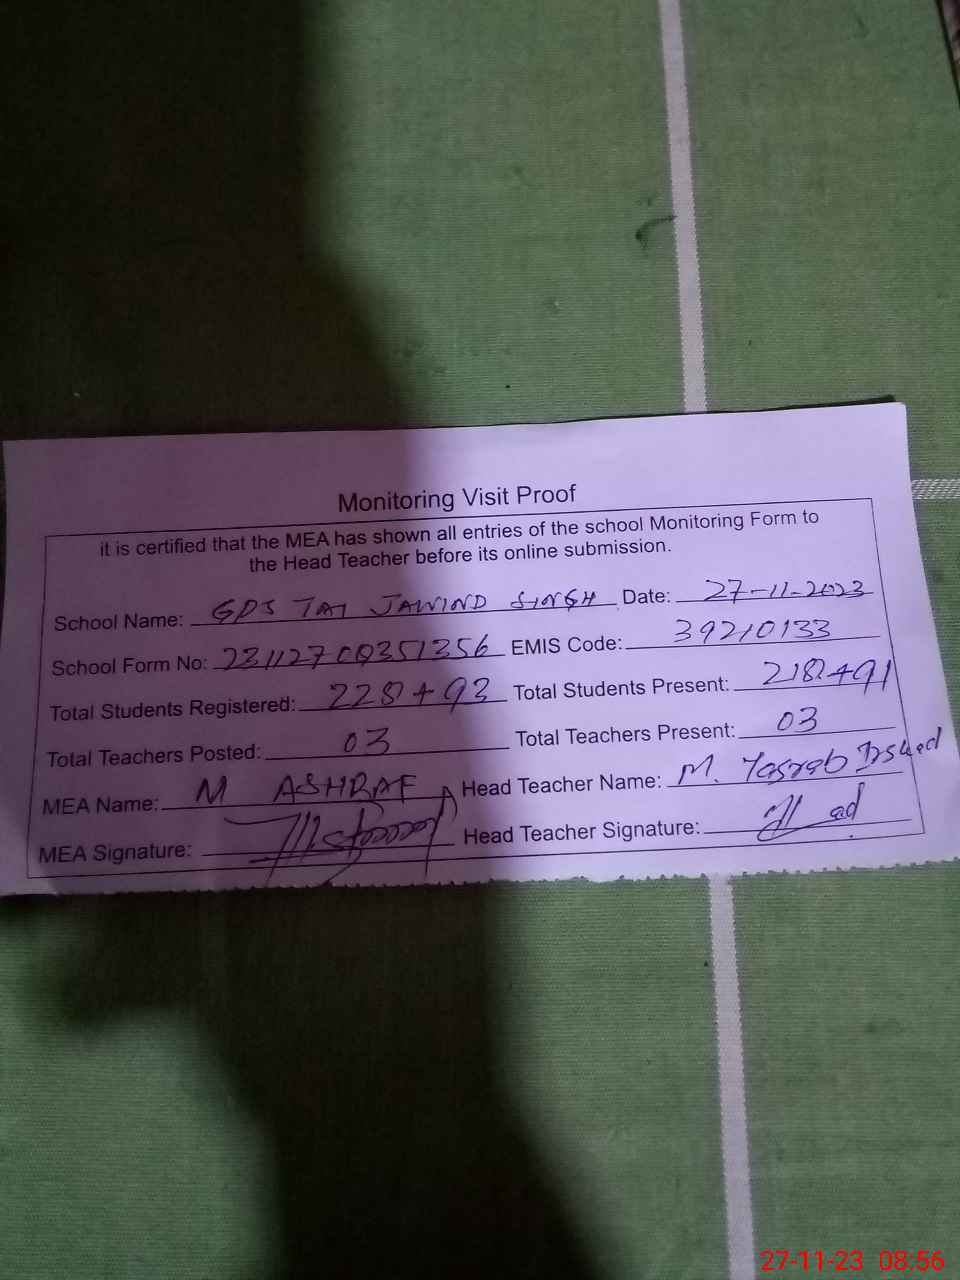 Monitoring Visit Proof
it is certified that the MEA has shown all entries of the school Monitoring Form to
the Head Teacher before its online submission.
School Name: GPS TAI JAWIND SINGH Date: 27-11-2023
School Form No: EMIS Code: 39210133
Total Students Registered: Total Students Present:
Total Teachers Posted: 03 Total Teachers Present: 03
MEA Name: M ASHRAF Head Teacher Name: M. Yasrab Irshad
MEA Signature: Head Teacher Signature:
27-11-23 08:56